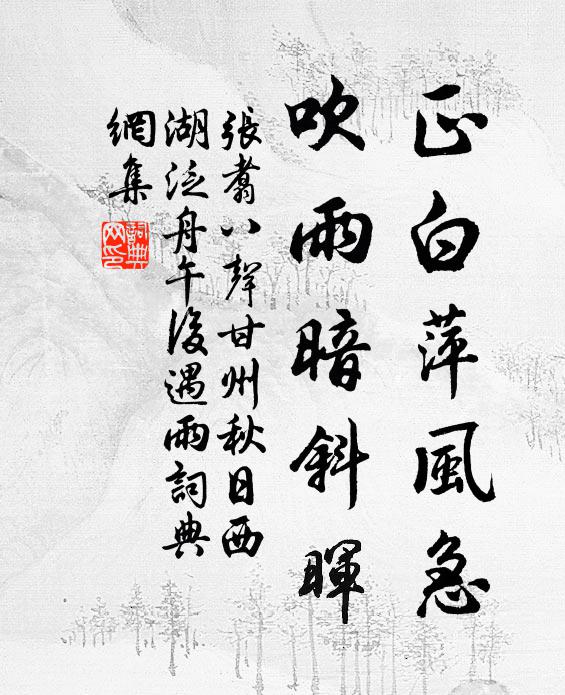 正白萍風急
吹雨暗斜暉
張翥八聲甘州秋日西
湖泛舟午後遇雨詞典
網集
詞典網印